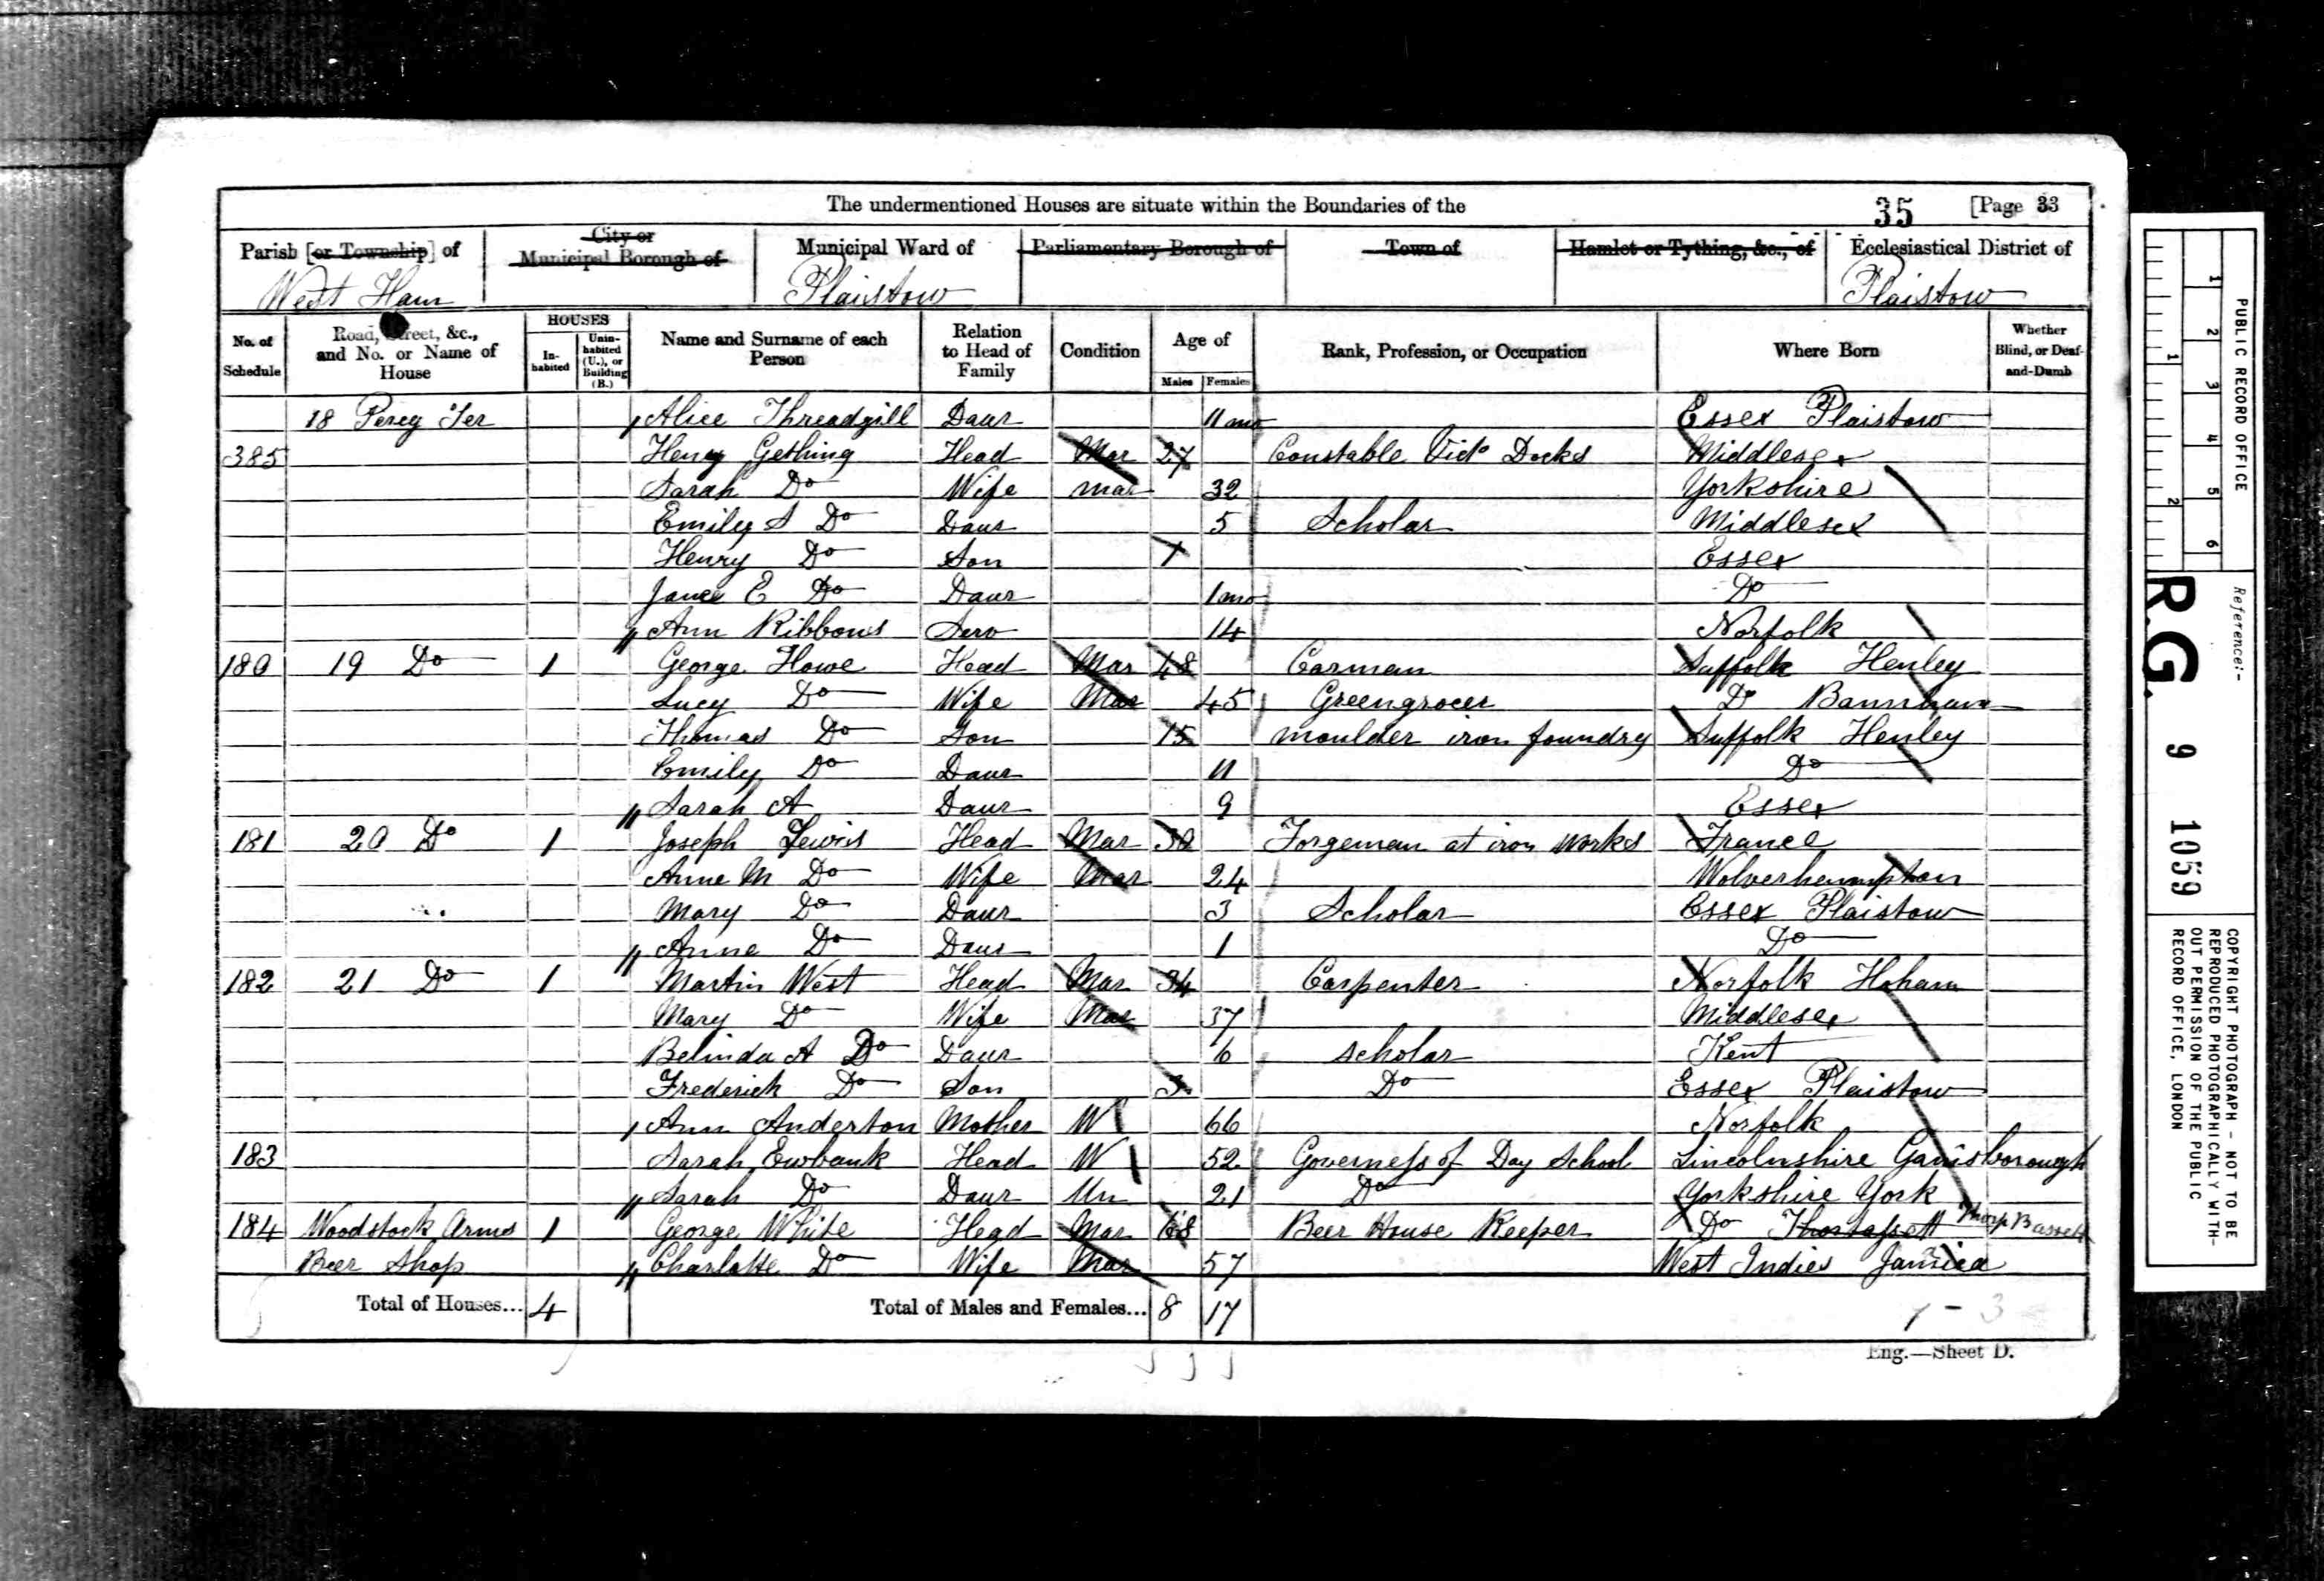 The undermentioned Houses are situate within the Boundaries of the
35 [Page 33
Parish [or Township] of West Ham
City or Municipal Borough of
Municipal Ward of Plaistow
Parliamentary Borough of
Town of
Hamlet or Tything, &c., of
Ecclesiastical District of Plaistow
No. of Schedule
Road, Street, &c., and No. or Name of House
HOUSES
Inhabited
Uninhabited (U.), or Building (B.)
Name and Surname of each Person
Relation to Head of Family
Condition
Age of
Males Females
Rank, Profession, or Occupation
Where Born
Whether Blind, or Deaf-and-Dumb
18 Percy Ter Alice Threadgill Daur 11 mo Essex Plaistow
385 Henry Gething Head Mar 27 Constable Vict Docks Middlesex
Sarah Do Wife Mar 32 Yorkshire
Emily S Do Daur 5 Scholar Middlesex
Henry Do Son 1 Essex
Jane E Do Daur 1 mo Do
Ann Ribbons Serv 14 Norfolk
180 19 Do 1 George Howe Head Mar 48 Carman Suffolk Henley
Lucy Do Wife Mar 45 Greengrocer Do
Thomas Do Son 15 moulder iron foundry Suffolk Henley
Emily Do Daur 11 Do
Sarah A Daur 9 Essex
181 20 Do 1 Joseph Lewis Head Mar 30 Forgeman at iron works France
Anne M Do Wife Mar 24 Wolverhampton
Mary Do Daur 3 Scholar Essex Plaistow
Anne Do Daur 1 Do
182 21 Do 1 Martin West Head Mar 34 Carpenter Norfolk Hoham
Mary Do Wife Mar 37 Middlesex
Belinda A Do Daur 6 scholar Kent
Frederick Do Son 3 Do Essex Plaistow
Ann Anderton Mother W 66 Norfolk
183 Sarah Ewbank Head W 52 Governess of Day School Lincolnshire Gainsborough
Sarah Do Daur Un 21 Do Yorkshire York
184 Woodstock Arms 1 George White Head Mar 68 Beer House Keeper Do Thorp Bassett
Beer Shop Charlotte Do Wife Mar 57 West Indies Jamica
Total of Houses... 4 Total of Males and Females... 8 17
1 - 3
Eng.—Sheet D.
PUBLIC RECORD OFFICE
1 2 3 4 5 6
1 2
Reference:-
R.G. 9 1059
COPYRIGHT PHOTOGRAPH - NOT TO BE
REPRODUCED PHOTOGRAPHICALLY WITH-
OUT PERMISSION OF THE PUBLIC
RECORD OFFICE, LONDON